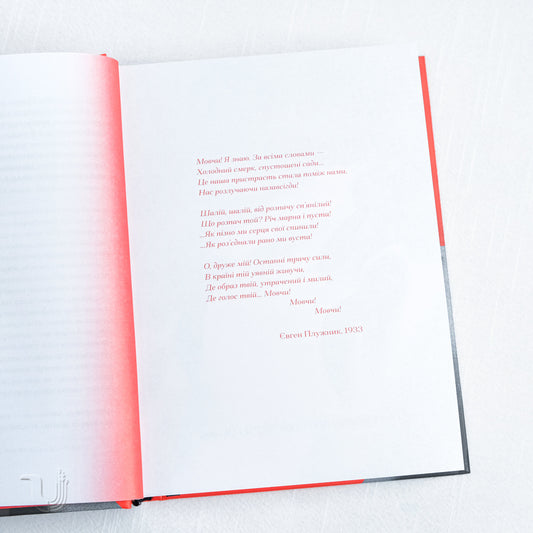 Мовчи! Я знаю. За всіма словами —
Холодний смерк, спустошені сади...
Це наша пристрасть стала поміж нами,
Нас розлучаючи назавсігди!
Шалій, шалій, від розпачу сп'янілий!
Що розпач той? Річ марна і пуста!
...Як пізно ми серця свої спинили!
...Як роз'єднали рано ми вуста!
О, друже мій! Останні трачу сили,
В країні тій уявній живучи,
Де образ твій, утрачений і милий,
Де голос твій... Мовчи!
Мовчи!
Мовчи!
Євген Плужник, 1933